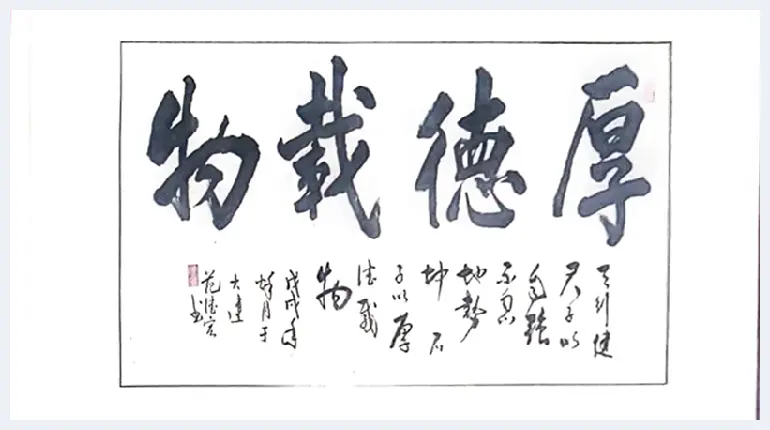 厚德載物
天行健
君子以
自强
不息
地勢
坤君
子以厚
德載
物
戊戌年
月于
大連
范德书